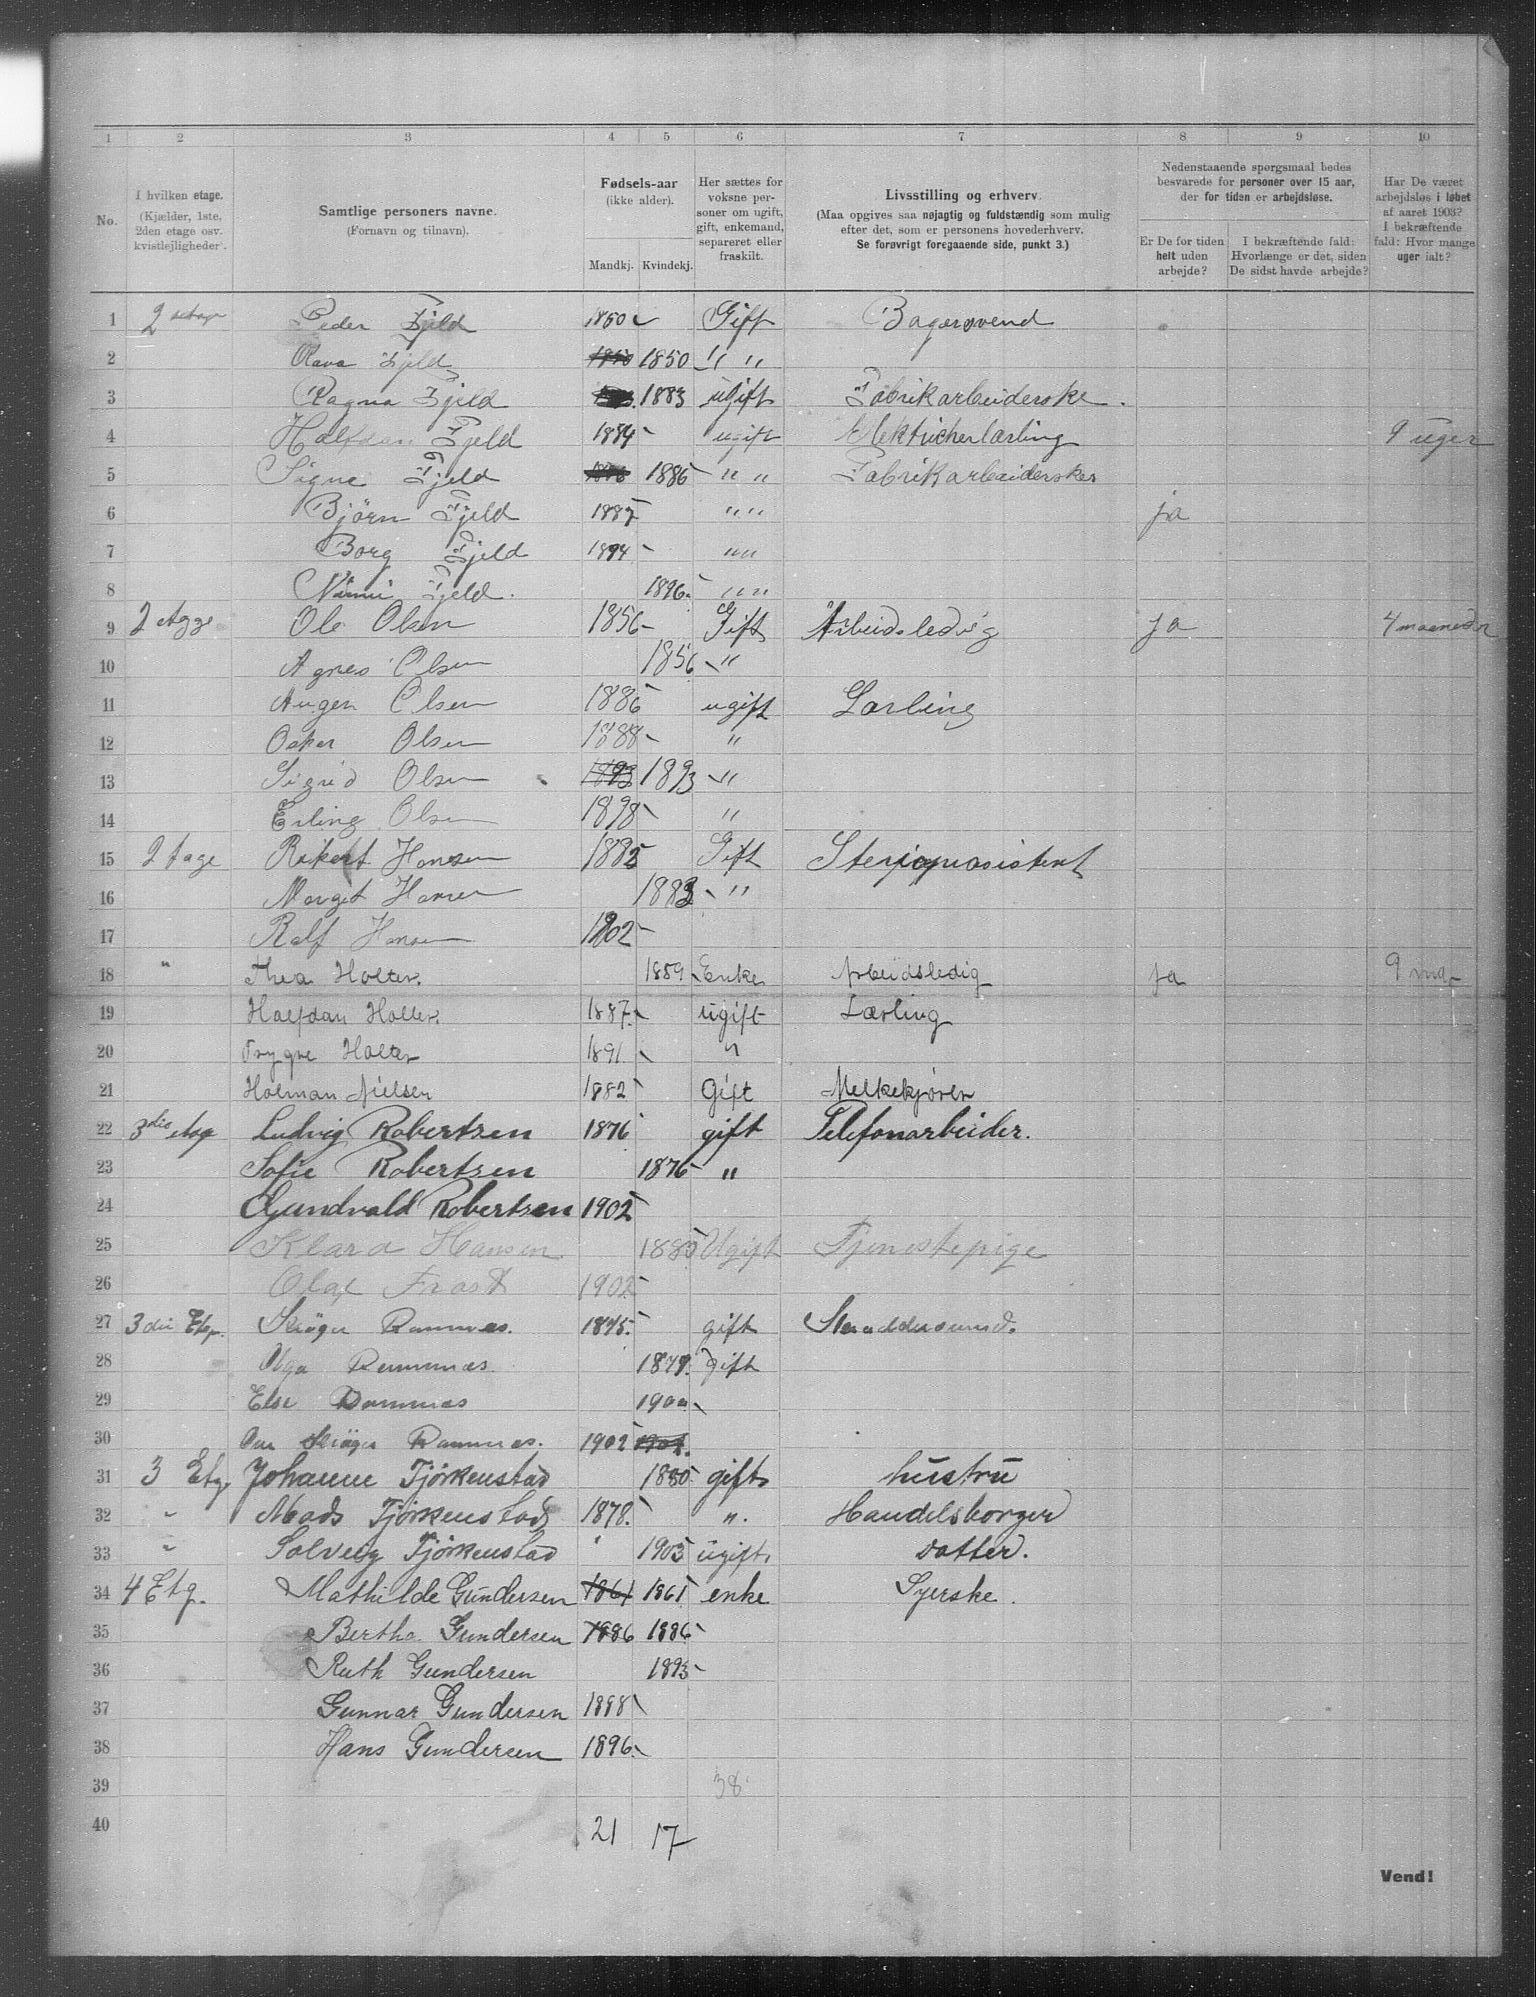 1 2 3 4 5 6 7 8 9 10
No.
I hvilken etage.
(Kjælder, 1ste, 2den etage osv. kvistlejligheder).
Samtlige personers navne.
(Fornavn og tilnavn).
Fødsels-aar
(ikke alder).
Mandkj. Kvindekj.
Her sættes for voksne personer om ugift, gift, enkemand, separeret eller fraskilt.
Livsstilling og erhverv.
(Maa opgives saa nøjagtig og fuldstændig som mulig efter det, som er personens hovederhverv.
Se forøvrigt foregaaende side, punkt 3.)
Nedenstaaende spørgsmaal bedes besvarede for personer over 15 aar, der for tiden er arbejdsløse.
Er De for tiden helt uden arbejde?
I bekræftende fald: Hvorlænge er det, siden De sidst havde arbejde?
Har De været arbejdsløs i løbet af aaret 1903? I bekræftende fald: Hvor mange uger ialt?
1 2 etage Peder Fjeld 1850 Gift Bagersvend
2 Fjeld 1850 " "
3 Ragna Fjeld 1883 ugift Fabrikarbeiderske
4 Halfdan Fjeld 1884 ugift 9 uger
5 Signe Fjeld 1886 " " Fabrikarbeiderske
6 Bjørn Fjeld 1887 " " ja
7 Borg Fjeld 1894 " "
8 Fjeld 1896 " "
9 2 Ole Olsen 1856 Gift Arbeidsledig ja 4 maaneder
10 Agnes Olsen 1856 "
11 Olsen 1886 ugift Lærling
12 Oskar Olsen 1888 "
13 Sigrid Olsen 1893 1893 "
14 Erling Olsen 1898 "
15 2 tage Hansen 1882 Gift
16 Marget Hansen 1883 "
17 Ralf Hansen 1902
18 " Thea Holter. 1859 Enke Arbeidsledig ja 9
19 Halfdan Holter. 1887 ugift Lærling
20 Trygve Holter 1891 "
21 Holman Nielsen 1882 Gift Melkekjører
22 3die etag Ludvig Robertsen 1876 gift Telefonarbeider.
23 Sofie Robertsen 1876 "
24 Gundvald Robertsen 1902
25 Klara Hansen 1885 Ugift Tjenestepige
26 Olaf Frost 1902
27 3die Etg. Ramnæs. 1875 gift
28 Olga Ramnæs. 1879 gift
29 Else Ramnæs 1900
30 Ramnæs. 1902
31 3 Etg. Johanne Tjørkenstad 1880 gift hustru
32 " Mads Tjørkenstad 1878. ". Handelsborger
33 " Solveig Tjørkenstad 1903 ugift. datter.
34 4 Etg. Mathilde Gundersen 1861 1861 enke Syerske.
35 Bertha Gundersen 1886 1886
36 Ruth Gundersen 1893
37 Gunnar Gundersen 1898
38 Hans Gundersen 1896
39 38
40 21 17
Vend!